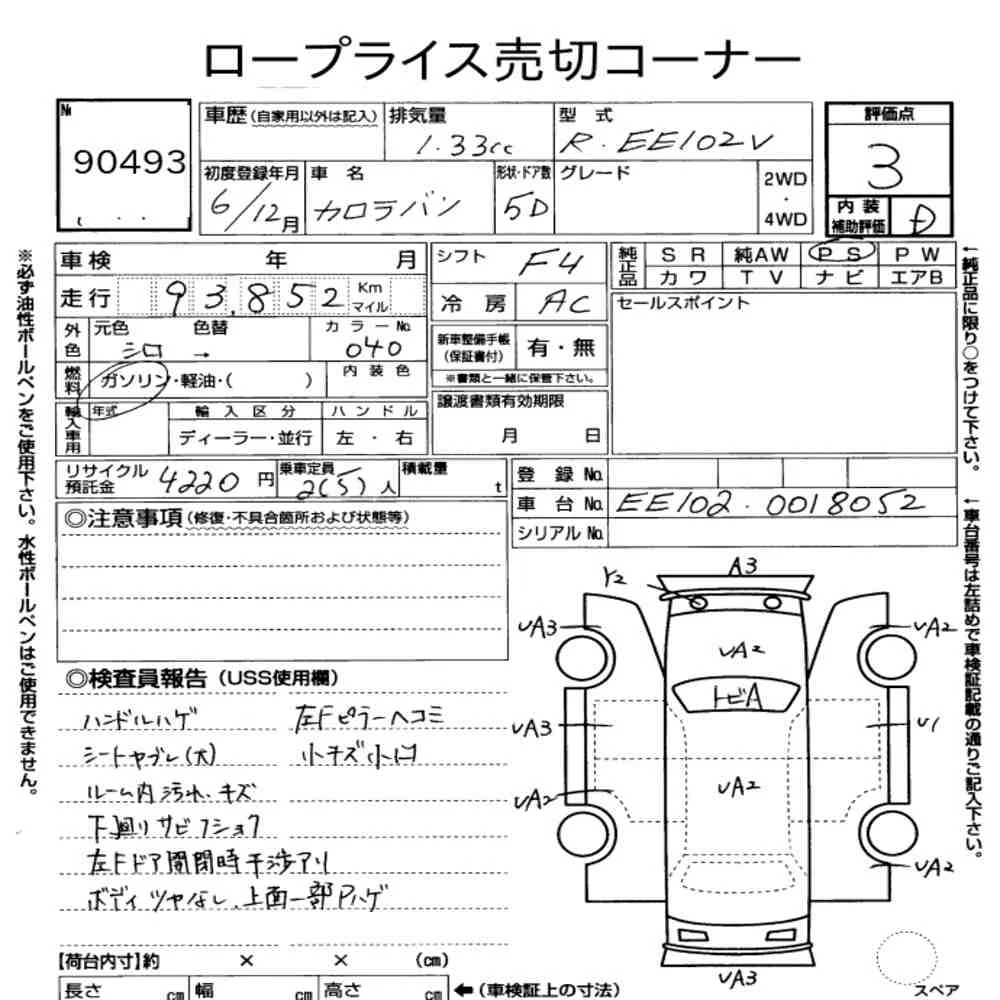 ロープライス売切コーナー
№
90493
車歴(自家用以外は記入)
排気量
1.33cc
型 式
R・EE102V
評価点
3
初度登録年月
6/12月
車 名
カロラバン
形状・ドア数
5D
グレード
2WD
・
4WD
内 装
補助評価
D
車検 年 月
シフト
F4
純正品
S R 純AW P S P W
カワ T V ナビ エアB
走行 93,852 Km マイル
冷 房
AC
セールスポイント
外色
元色 色替
シロ →
カラーNo.
040
新車整備手帳
(保証書付)
有・無
※書類と一緒に保管下さい。
燃料
ガソリン・軽油・( )
内 装 色
輸入車用
年式
輸 入 区 分
ハンドル
ディーラー・並行
左 ・ 右
譲渡書類有効期限
月 日
リサイクル
預託金
4220 円
乗車定員
2(5)人
積載量
t
登 録 No.
車 台 No.
EE102・0018052
シリアル No.
◎注意事項(修復・不具合箇所および状態等)
◎検査員報告(USS使用欄)
ハンドルハゲ 左Fピラーヘコミ
シートヤブレ(大) 小キズ小凹
ルーム内汚れ、キズ
下廻りサビフショク
左Fドア開閉時干渉アリ
ボディツヤなし、上面一部Pハゲ
A3
Y2
UA3
UA2
UA2
トビA
UA3
U1
UA2
UA2
UA2
UA3
【荷台内寸】約 × × (cm)
長さ cm 幅 cm 高さ cm
←(車検証上の寸法)
スペア
※必ず油性ボールペンをご使用下さい。水性ボールペンはご使用できません。
←純正品に限り○をつけて下さい。
←車台番号は左詰めで車検証記載の通りご記入下さい。